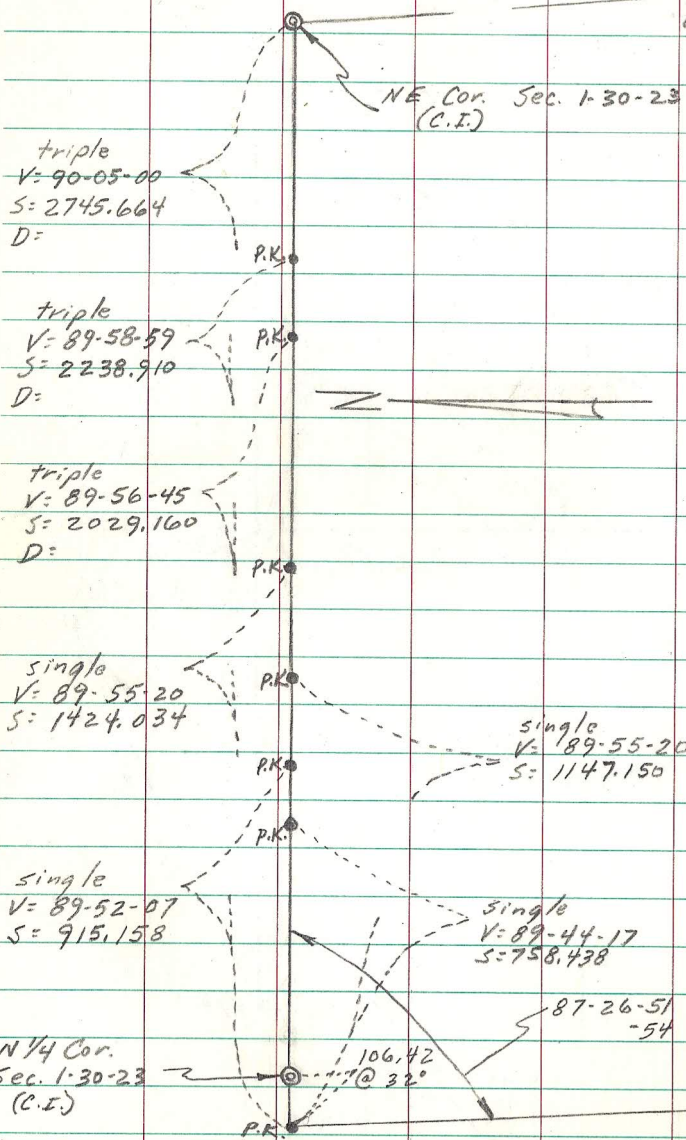 NE Cor. Sec. 1-30-23
(C.I.)
triple
V= 90-05-00
S= 2745.664
D=
P.K.
triple
V= 89-58-59
S= 2238.910
D=
P.K.
N
triple
V= 89-56-45
S= 2029.160
D=
P.K.
single
V= 89-55-20
S= 1424.034
P.K.
single
V= 89-55-20
S= 1147.150
P.K.
P.K.
single
V= 89-52-07
S= 915.158
single
V= 89-44-17
S= 758.438
87-26-51
-54
N 1/4 Cor.
Sec. 1-30-23
(C.I.)
106.42
@ 32°
P.K.